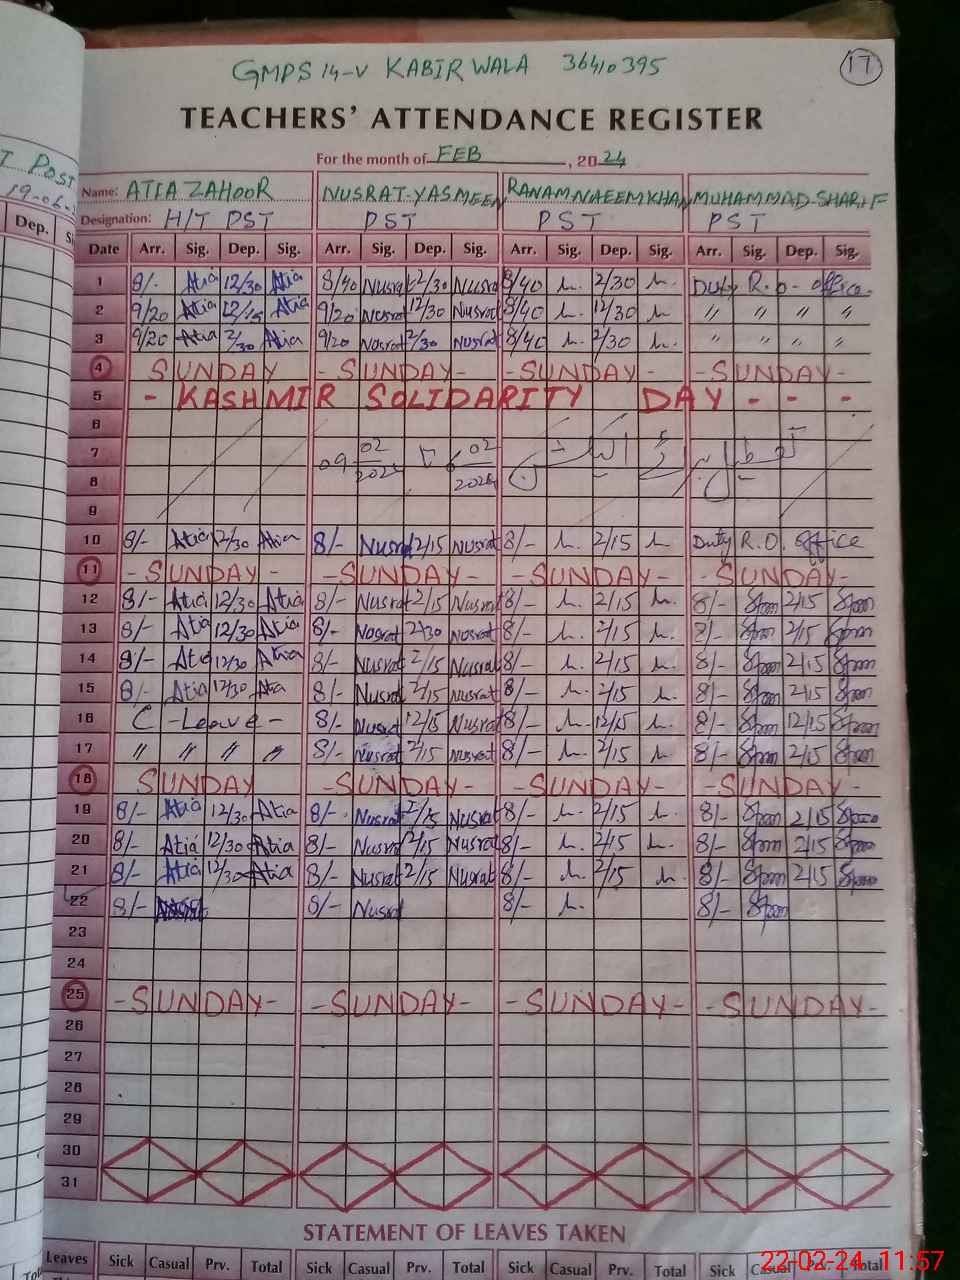 GMPS 14-V KABIRWALA 36410395
17
TEACHERS' ATTENDANCE REGISTER
For the month of FEB, 2024
T POST
Name: ATIA ZAHOOR NUSRAT-YASMEEN RANAM.NAEEMKHAN MUHAMMAD-SHARIF
Designation: H/T PST PST PST PST
Dep.
Date Arr. Sig. Dep. Sig. Arr. Sig. Dep. Sig. Arr. Sig. Dep. Sig. Arr. Sig. Dep. Sig.
1 8/- Atia 12/30 Atia 8/40 Nusrat 12/30 Nusrat 8/40 2/30 Duty R.O-office.
2 9/20 Atia 12/15 Atia 9/20 Nusrat 12/30 Nusrat 8/40 12/30 〃 〃 〃 〃
3 9/20 Atia 2/30 Atia 9/20 Nusrat 2/30 Nusrat 8/40 2/30 〃 〃 〃 〃
4 SUNDAY -SUNDAY- -SUNDAY- -SUNDAY-
5 - KASHMIR SOLIDARITY DAY - - -
6
7 02 02
8 09 2024 2024
9
10 8/- Atia 12/30 Atia 8/- Nusrat 2/15 Nusrat 8/- 2/15 Duty R.O. office
11 -SUNDAY- -SUNDAY- -SUNDAY- -SUNDAY-
12 8/- Atia 12/30 Atia 8/- Nusrat 2/15 Nusrat 8/- 2/15 8/- 2/15
13 8/- Atia 12/30 Atia 8/- Nusrat 2/30 Nusrat 8/- 2/15 8/- 2/15
14 8/- Atia 12/30 Atia 8/- Nusrat 2/15 Nusrat 8/- 2/15 8/- 2/15
15 8/- Atia 12/30 Atia 8/- Nusrat 2/15 Nusrat 8/- 2/15 8/- 2/15
16 C -Leave- 8/- Nusrat 12/15 Nusrat 8/- 12/15 8/- 12/15
17 〃 〃 〃 〃 8/- Nusrat 2/15 Nusrat 8/- 2/15 8/- 2/15
18 SUNDAY -SUNDAY- -SUNDAY- -SUNDAY-
19 8/- Atia 12/30 Atia 8/- Nusrat 2/15 Nusrat 8/- 2/15 8/- 2/15
20 8/- Atia 12/30 Atia 8/- Nusrat 2/15 Nusrat 8/- 2/15 8/- 2/15
21 8/- Atia 12/30 Atia 8/- Nusrat 2/15 Nusrat 8/- 2/15 8/- 2/15
22 8/- 8/- Nusrat 8/- 8/-
23
24
25 -SUNDAY- -SUNDAY- -SUNDAY- -SUNDAY-
26
27
28
29
30
31
STATEMENT OF LEAVES TAKEN
Leaves Sick Casual Prv. Total Sick Casual Prv. Total Sick Casual Prv. Total Sick Casual Prv. Total
22-02-24 11:57